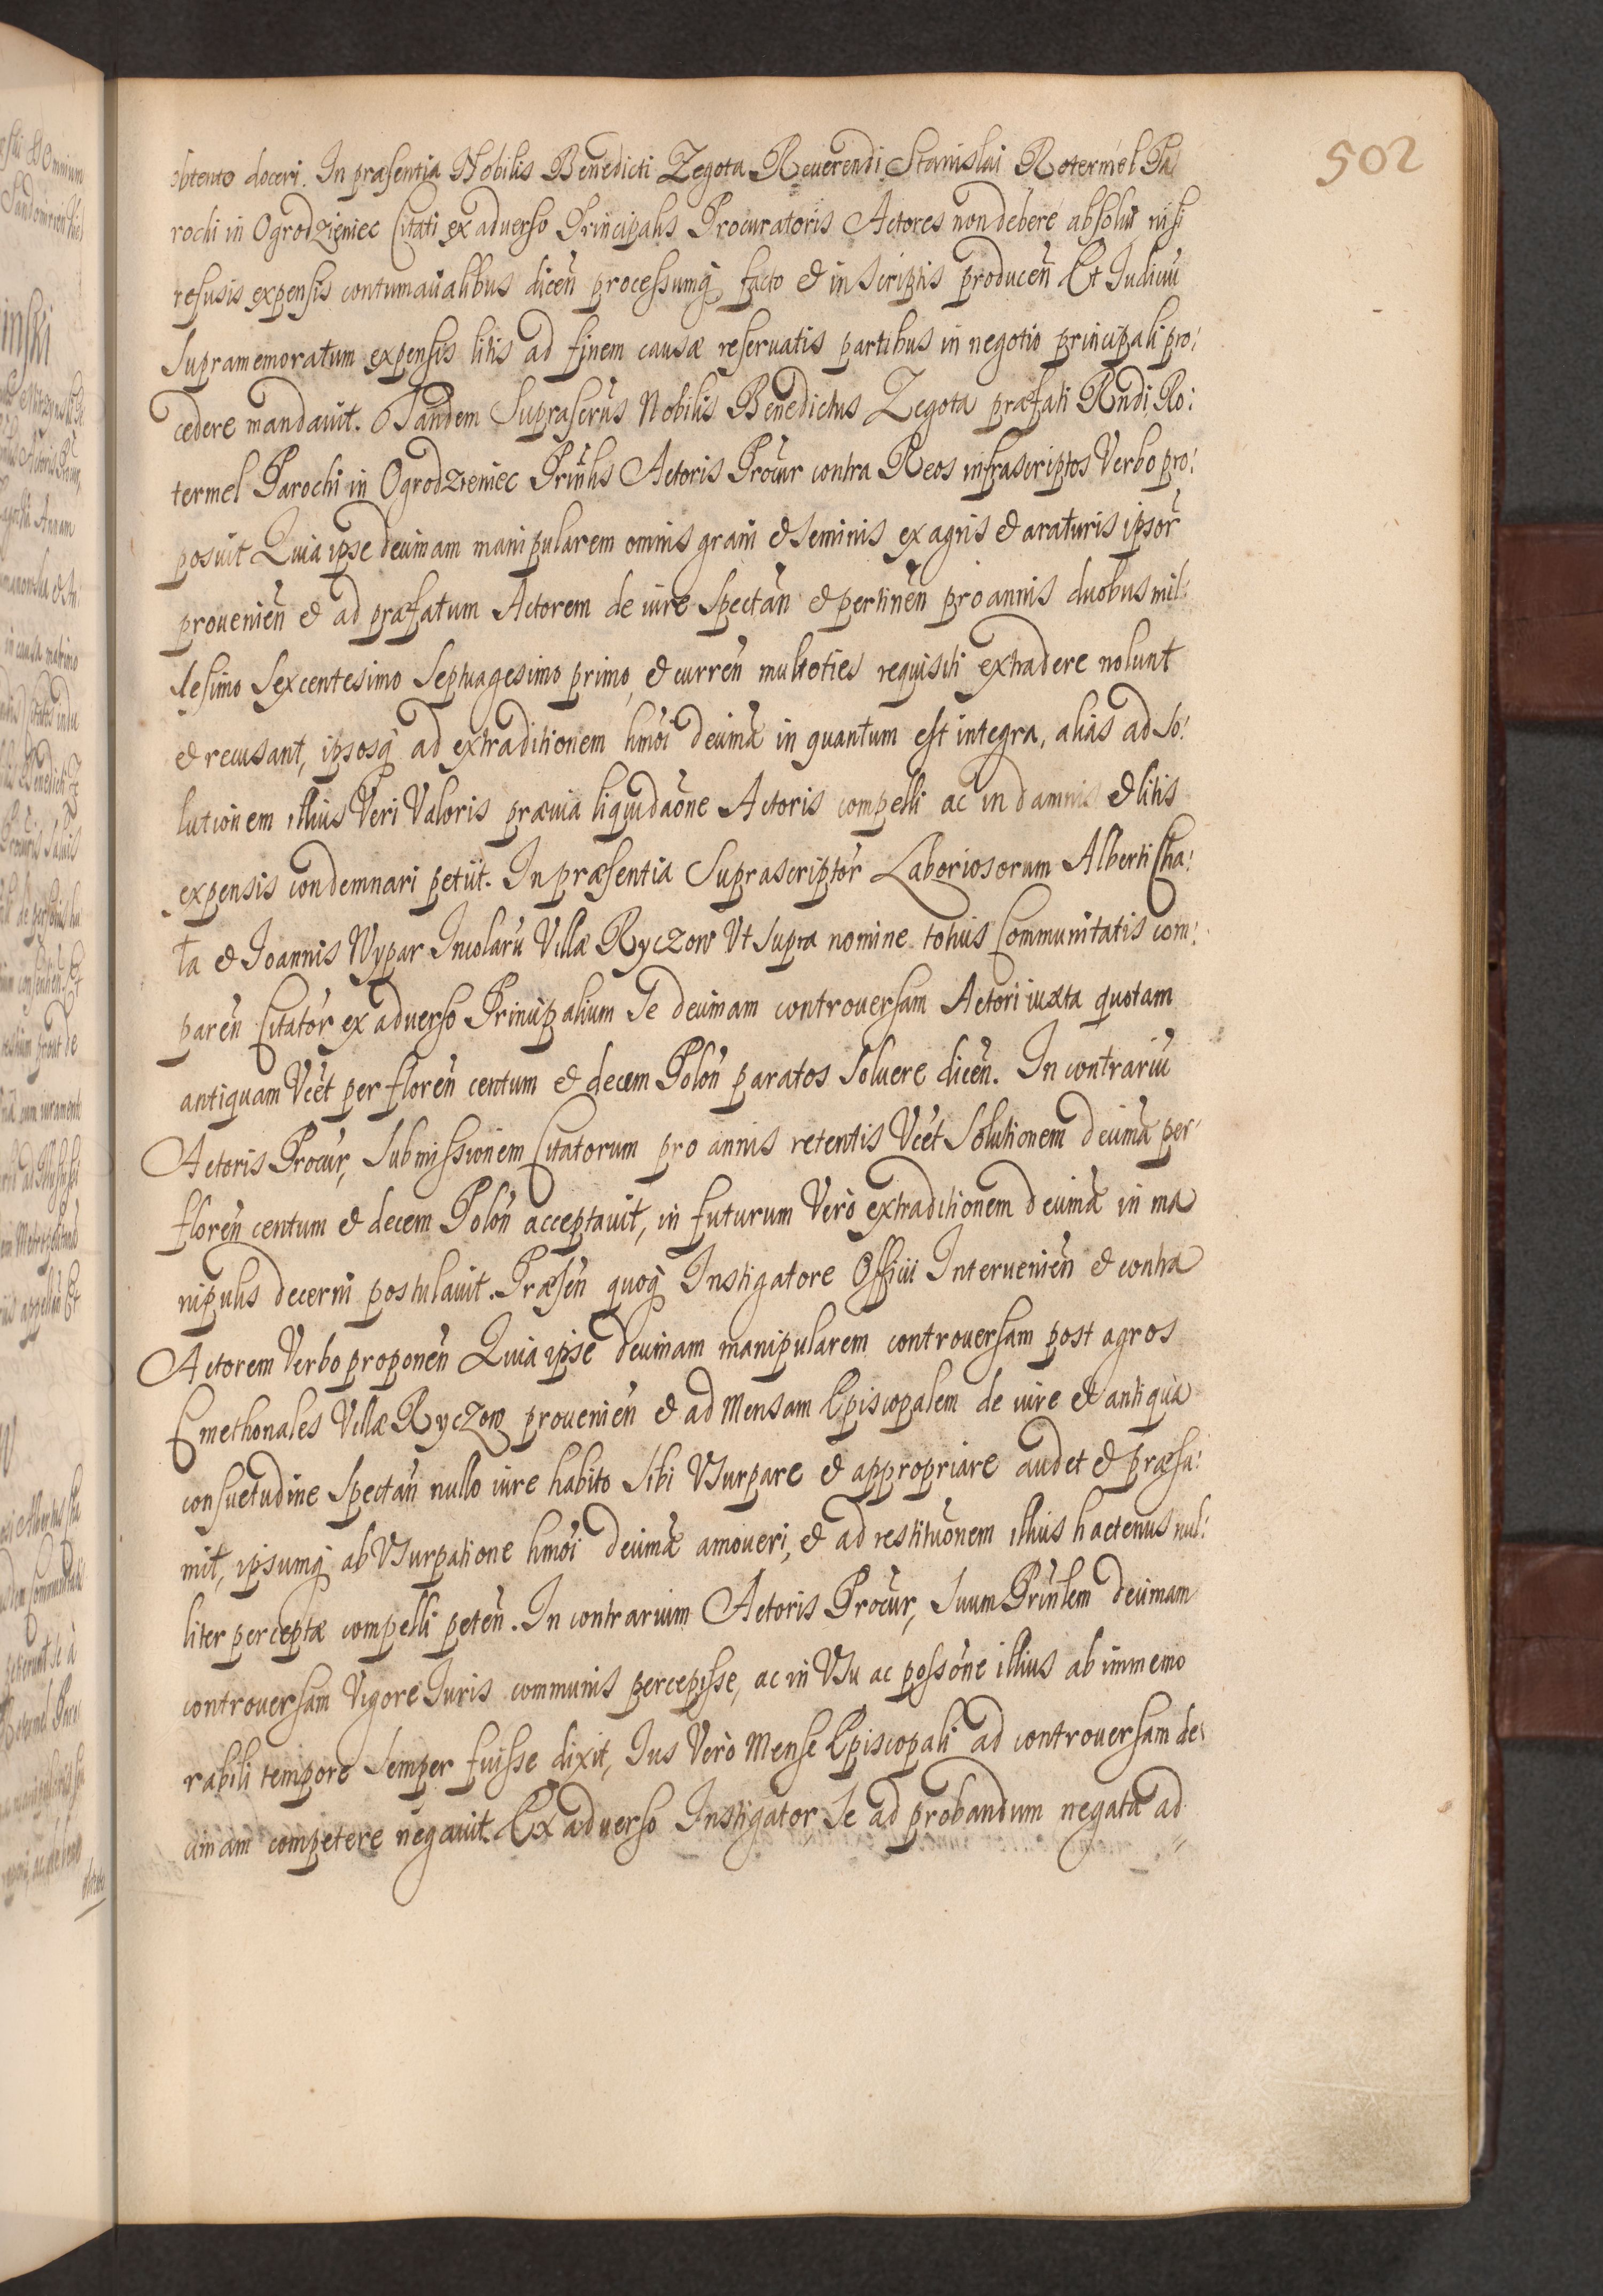 502
obtento doceri. In præsentia Nobilis Benedicti Zegota Reuerendi Stanislai Rotermel Pa
rochi in Ogrodzieniec Citati ex adverso Principalis Procuratoris Actores non debere absolui nisi
refusis expensis contumacialibus dicen̄ processumq̨ facto et in scriptis producen̄ Et Iudiciū
Supramemoratum expensis litis ad finem causæ reseruatis partibus in negotio principali pro:
cedere mandauit. Tandem Suprascrūs Nobilis Benedictus Zegota præfati Rn̄di Ro:
termel Parochi in Ogrodzieniec Prin̄lis Actoris Procur̄ contra Reos infrascriptos Verbo pro:
posuit Quia ipse decimam manipularem omnis grani et seminis ex agris et araturis ipsor̄
prouenien̄ et ad præfatum Actorem de iure Spectan̄ et pertinen̄ pro annis duobus mil:
lesimo Sexcentesimo Septuagesimo primo, et curren̄ multoties requisiti extradere nolunt
et recusant, ipsosq̨ ad extraditionem hmōi decimæ in quantum est integra, alias ad so:
lutionem illius Veri Valoris præuia liquidaōne Actoris compelli ac in damnis et litis
expensis condemnari petiit. In præsentia Suprascriptor̄ Laboriosorum Alberti Cha:
ta et Ioannis Wypar Incolarū Villæ Ryczow Vt supra nomine totius Communitatis com:
paren̄ Citator̄ ex adverso Principalium Se decimam controuersam Actori iuxta quotam
antiquam Vcēt per floren̄ centum et decem Polon̄ paratos Soluere dicen̄. In contrariū
Actoris Procur̄, Submissionem Citatorum pro annis retentis Vcēt Solutionem decimæ per
floren̄ centum et decem Polon̄ acceptauit, in futurum Verò extraditionem decimæ in ma
nipulis decerni postulauit. Præsen̄ quoq̨ Instigatore Officii Interuenien̄ et contra
Actorem Verbo proponen̄ Quia ipse decimam manipularem controuersam post agros
Cmethonales Villæ Ryczow prouenien̄ et ad Mensam Episcopalem de iure et antiqua
consuetudine Spectan̄ nullo iure habito Sibi Vsurpare et appropriare audet et præsu:
mit, ipsumq̨ ab Vsurpatione hmōi decimæ amoueri, et ad restituōnem illius hactenus nul:
liter perceptæ compelli peten̄. In contrarium Actoris Procur̄, Suum Prin̄lem decimam
controuersam Vigore Iuris communis percepisse, ac in Vsu ac possōne illius ab immemo
rabili tempore Semper fuisse dixit, Ius Verò Mensæ Episcopali ad controuersam de
cimam competere negauit. Ex adverso Instigator Se ad probandum negata ad